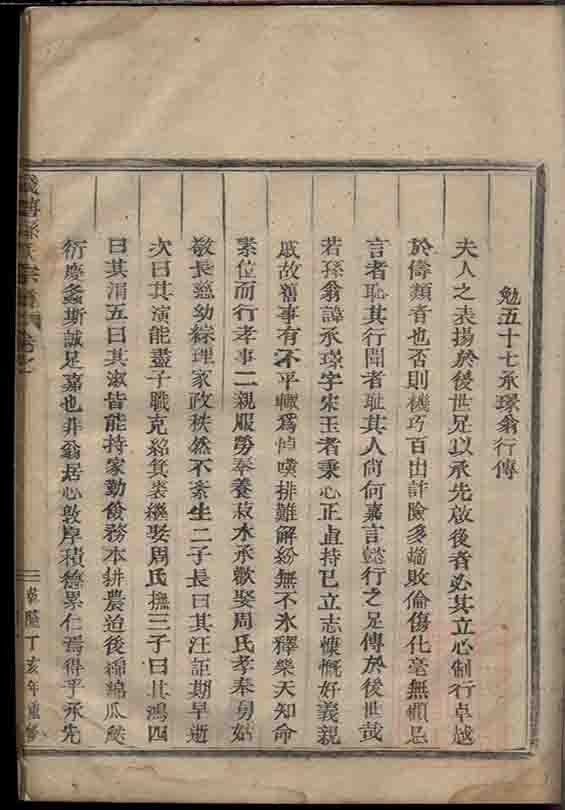 勉五十七承璟翁行傳
夫人之表揚於後世足以承先啟後者必其立心制行卓越
於儔類者也否則機巧百出詐險多端敗倫傷化毫無顧忌
言者恥其行聞者耻其人尙何嘉言懿行之足傳於後世哉
若孫翁諱承璟字宋玉者秉心正直持己立志慷慨好義親
戚故舊事有不平輙爲悼嘆排難解紛無不氷釋樂天知命
素位而行孝事二親服勞奉養菽水承歡娶周氏孝奉舅姑
敬長慈幼綜理家政秩然不紊生二子長曰其汪詎期早逝
次曰其演能盡子職克紹箕裘繼娶周氏撫三子曰其鴻四
曰其渭五曰其淑皆能持家勤儉務本耕農迨後綿綿瓜瓞
衍慶螽斯誠足嘉也非翁居心敦厚積德累仁焉得乎承先
孫氏宗譜 卷之
乾隆丁亥年重修